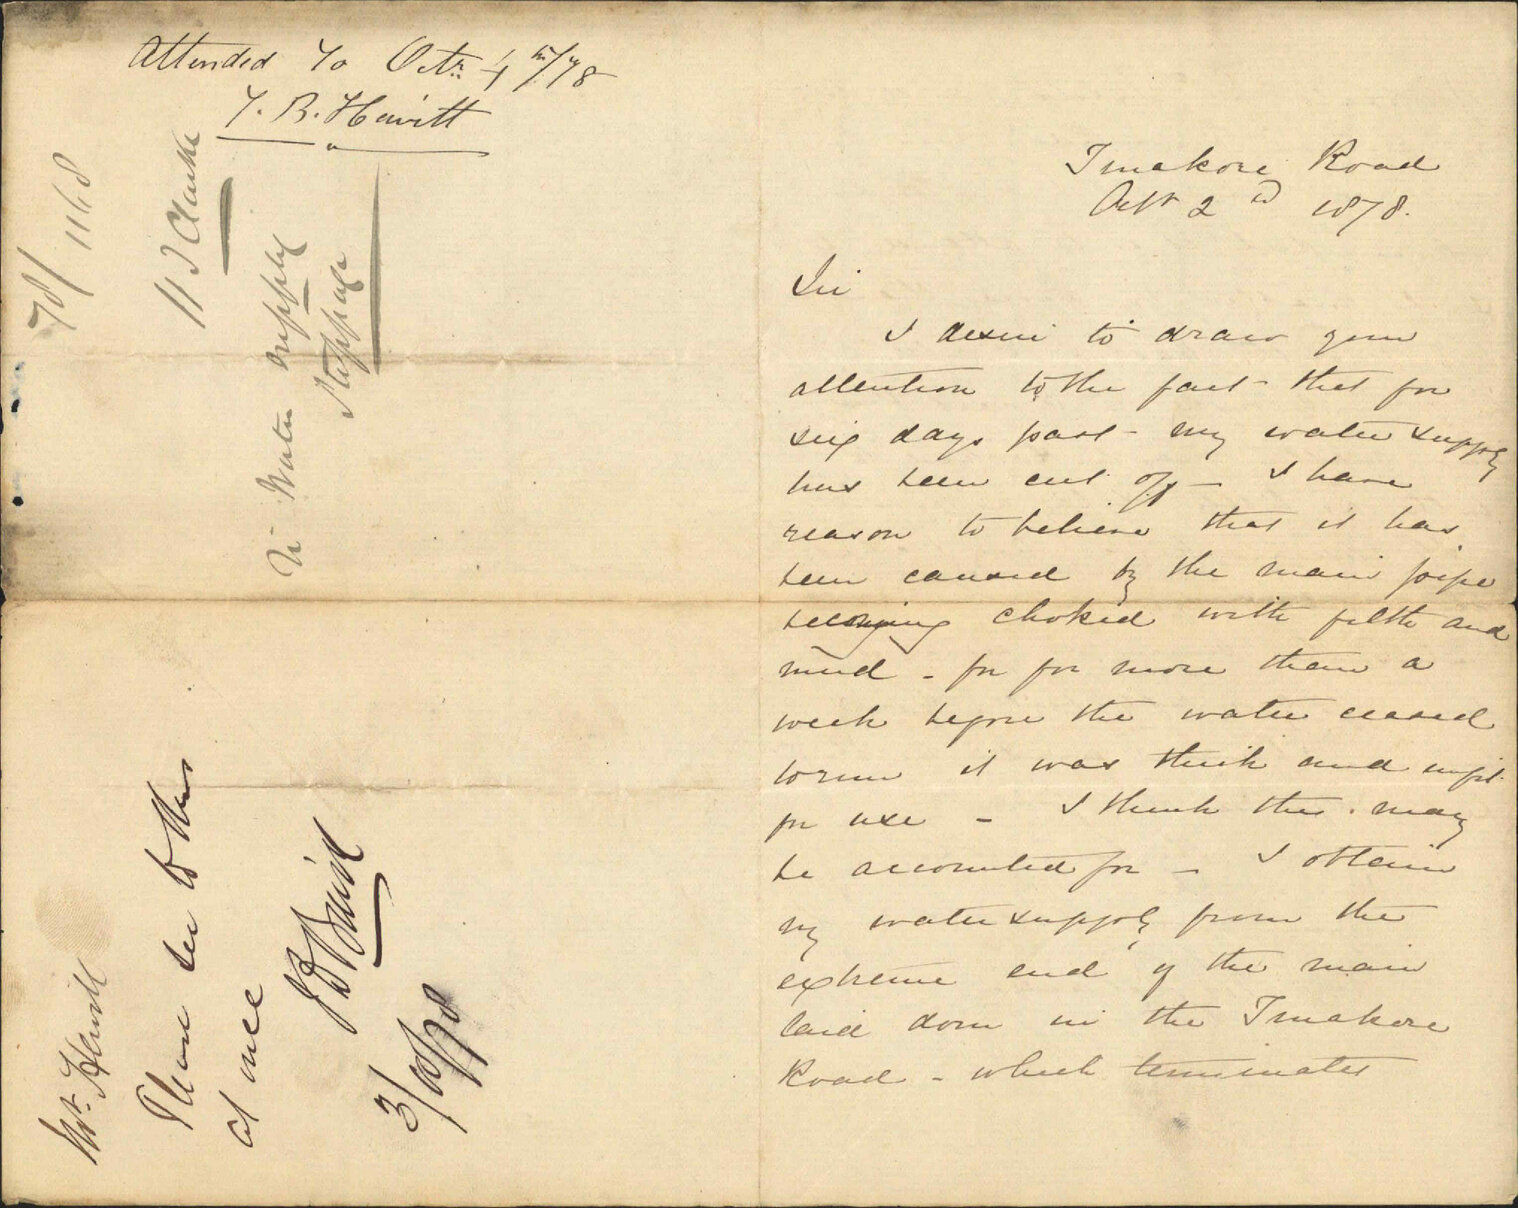 Attended To Octr. 4th/78
T. B. Hewitt
78/1168
H J Clarke
Water supply
stoppage
Mr. Hewitt
Please see to this
at once
J B Baird
3/10/78
Tinakore Road
Octr 2nd 1878.
Sir
I desire to draw your
attention to the fact that for
six days past my water supply
has been cut off - I have
reason to believe that it has
been caused by the main pipe
choked with filth and
mud - for for more than a
week before the water ceased
to run it was thick and unfit
for use - I think this may
be accounted for - I obtain
my water supply from the
extreme end of the main
laid down in the Tinakore
Road - which terminates